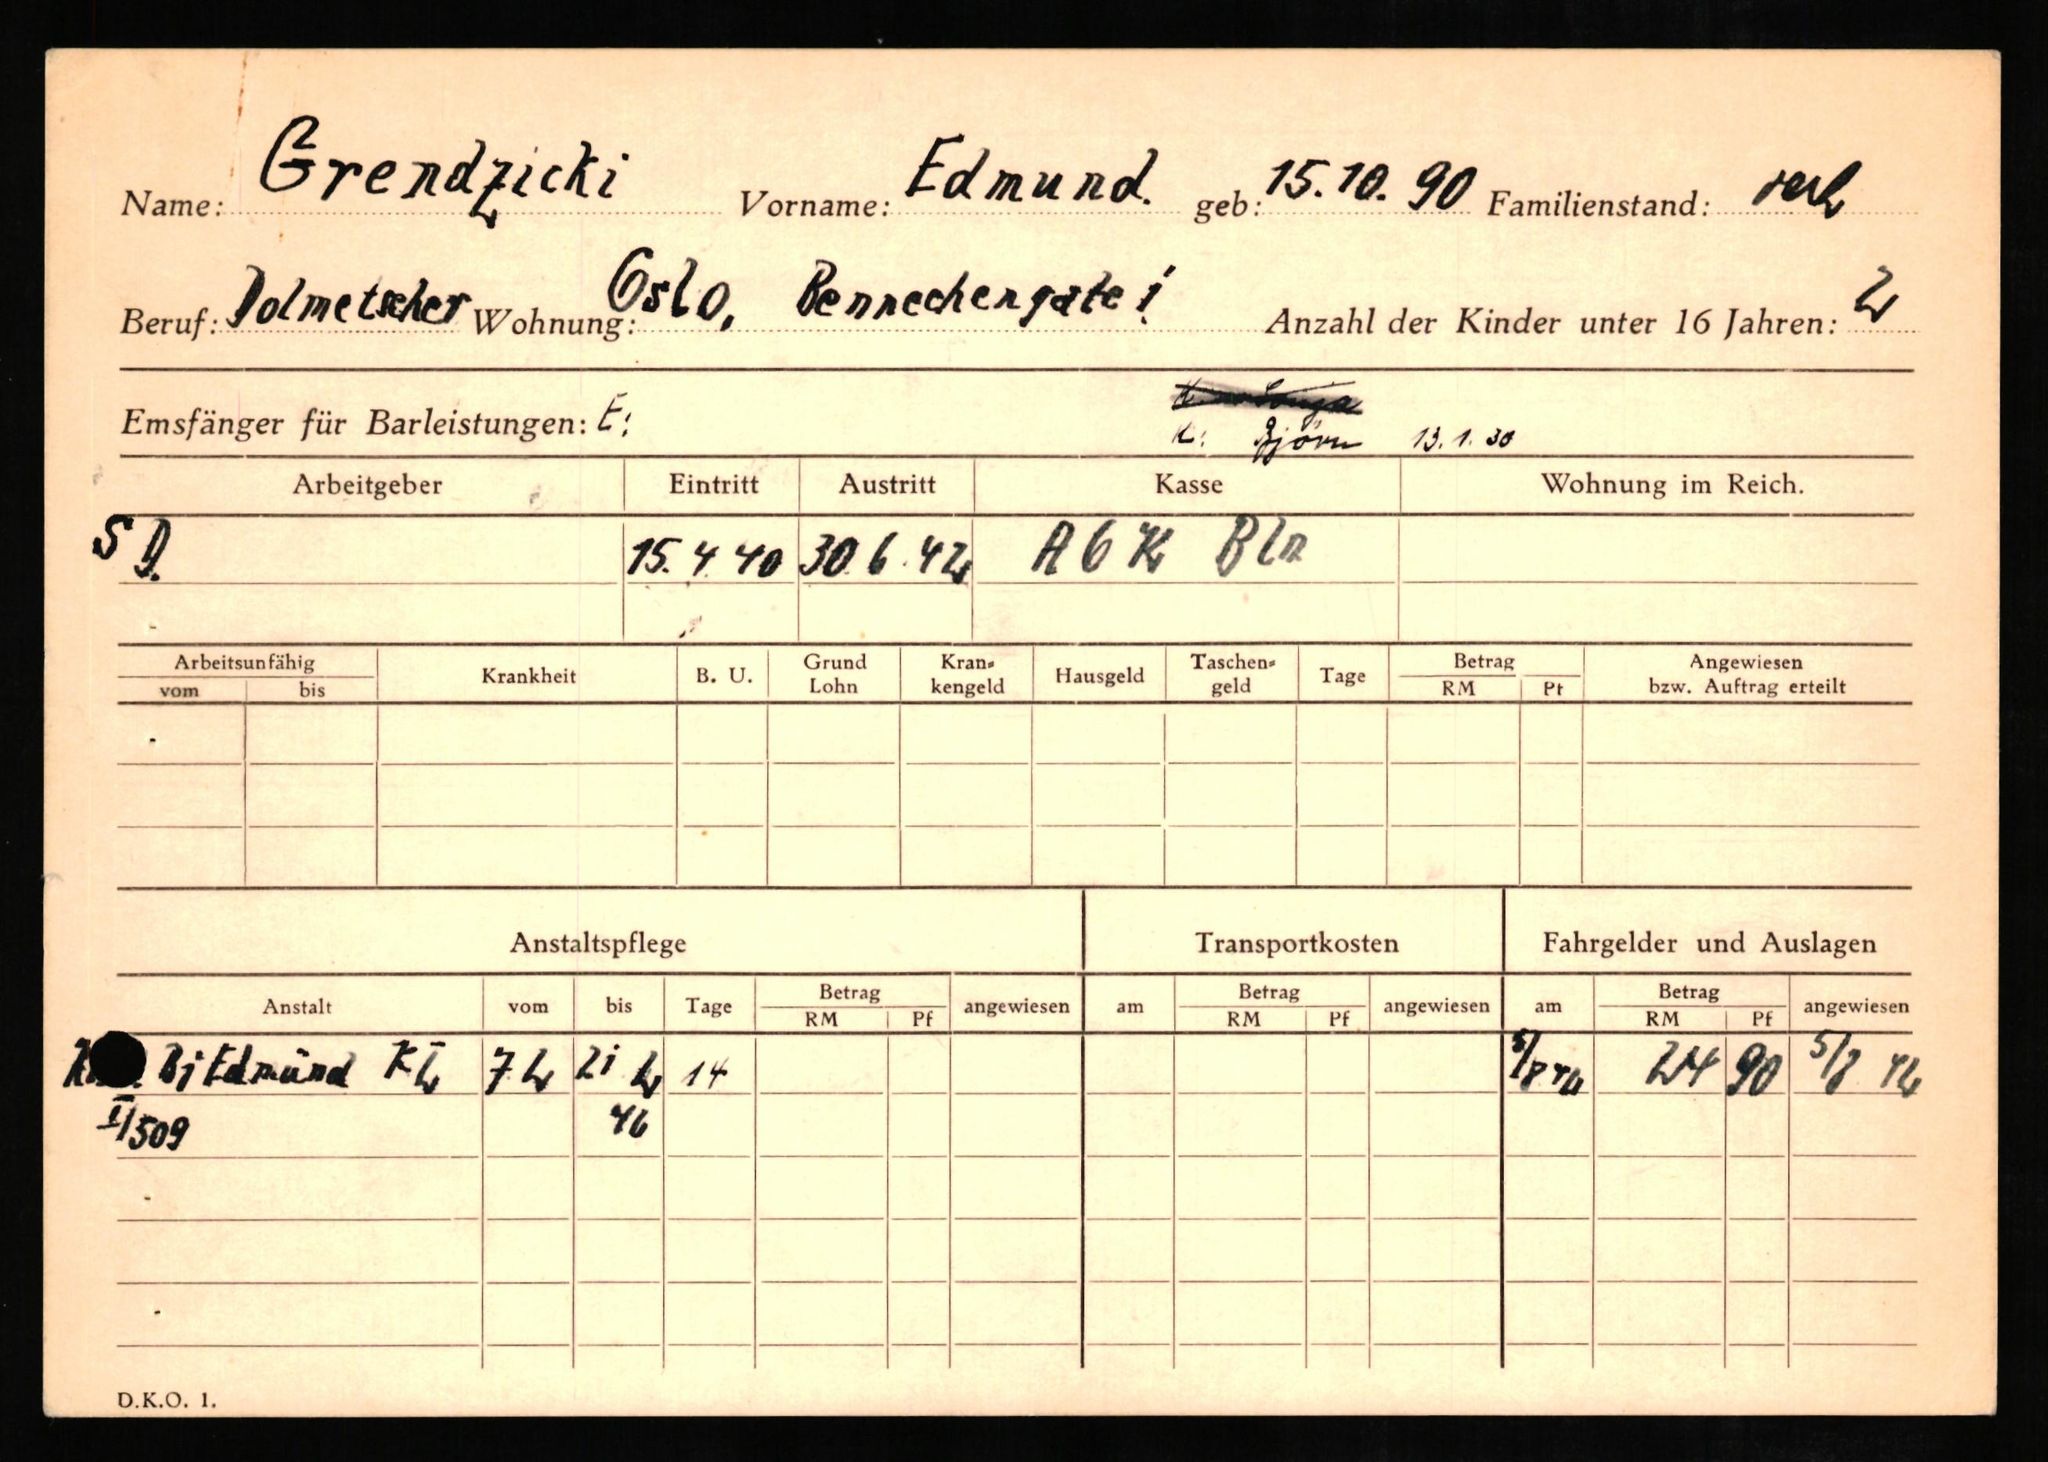 Name: Grendzicki Vorname: Edmund. geb: 15.10.90 Familienstand: verh
Beruf: Dolmetscher Wohnung: Oslo, Bennechengate 1 Anzahl der Kinder unter 16 Jahren: 2
Sonja
Emsfänger für Barleistungen: E: K: Björn 13.1.30
Arbeitgeber Eintritt Austritt Kasse Wohnung im Reich.
S D. 15.4.40 30.6.42 AOK Bln
Arbeitsunfähig Krankheit B. U. Grund Lohn Kran-kengeld Hausgeld Taschen-geld Tage Betrag Angewiesen bzw. Auftrag erteilt
vom bis RM Pf
Anstaltspflege Transportkosten Fahrgelder und Auslagen
Anstalt vom bis Tage Betrag angewiesen am Betrag angewiesen am Betrag angewiesen
RM Pf RM Pf RM Pf
Edmund 7.2 21 2 14 5/8 42 24 90 5/8 42
II/509
D.K.O. 1.